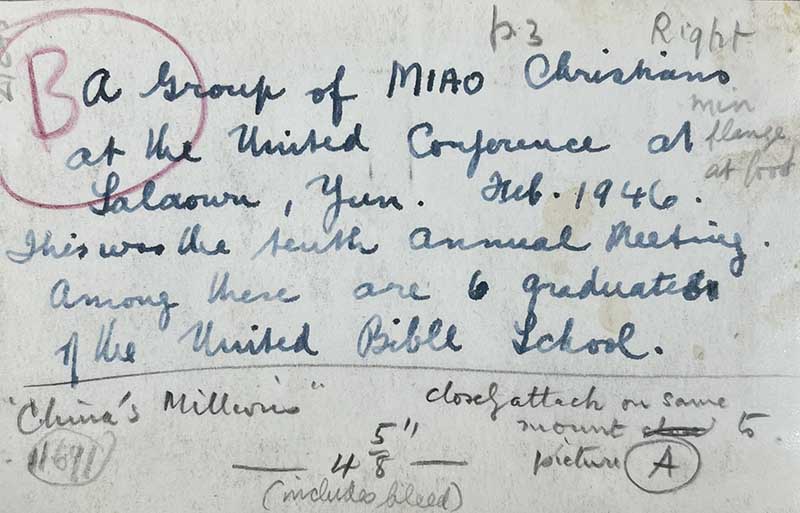 p. 3 Right
B
A Group of MIAO Christians
at the United Conference at
Salaowu, Yun. Feb. 1946.
min
flange
at foot
This was the tenth annual Meeting.
Among these are 6 graduates
of the United Bible School.
"China's Millions"
closely attach on same
mount to
picture A
11691
4 5/8"
(includes bleed)